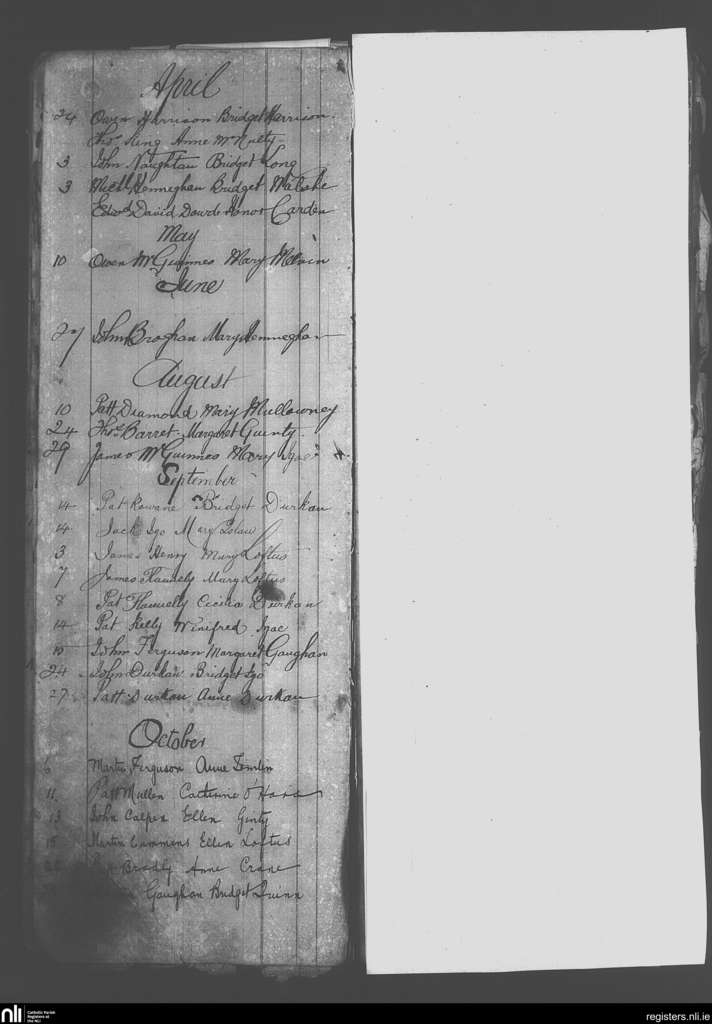 April
24 Owen Harrison Bridget Harrison
Thos King Anne McNulty
3 John Naughtan Bridget Long
3 Michl Henneghan Bridget Walshe
Edwd David Dowd Honor Carden
May
10 Owen McGuinnes Mary
June
27 John Broghan Mary Henneghan
August
10 Patt Diamond Mary Mullowney
24 Thos Barret Margaret Guinty
29 James McGuinnes Mary Igoe
September
14 Pat Rowane Bridget Durkan
14 Jack Igo Mary
3 James Henry Mary Loftus
7 James Flannely Mary Loftus
8 Pat Flannelly Cecilia Durkan
14 Pat Kelly Winifred Igoe
15 John Ferguson Margaret Gaughan
24 John Durkan Bridget Igo
27 Patt Durkan Anne Durkan
October
6 Martin Ferguson Anne
11 Patt Mullen Catherine O'Hara
13 John Calpen Ellen Ginty
15 Martin Cummens Ellen Loftus
Bradly Anne Crane
Gaughan Bridget Quinn
nli Catholic Parish
Registers at
the NLI
registers.nli.ie